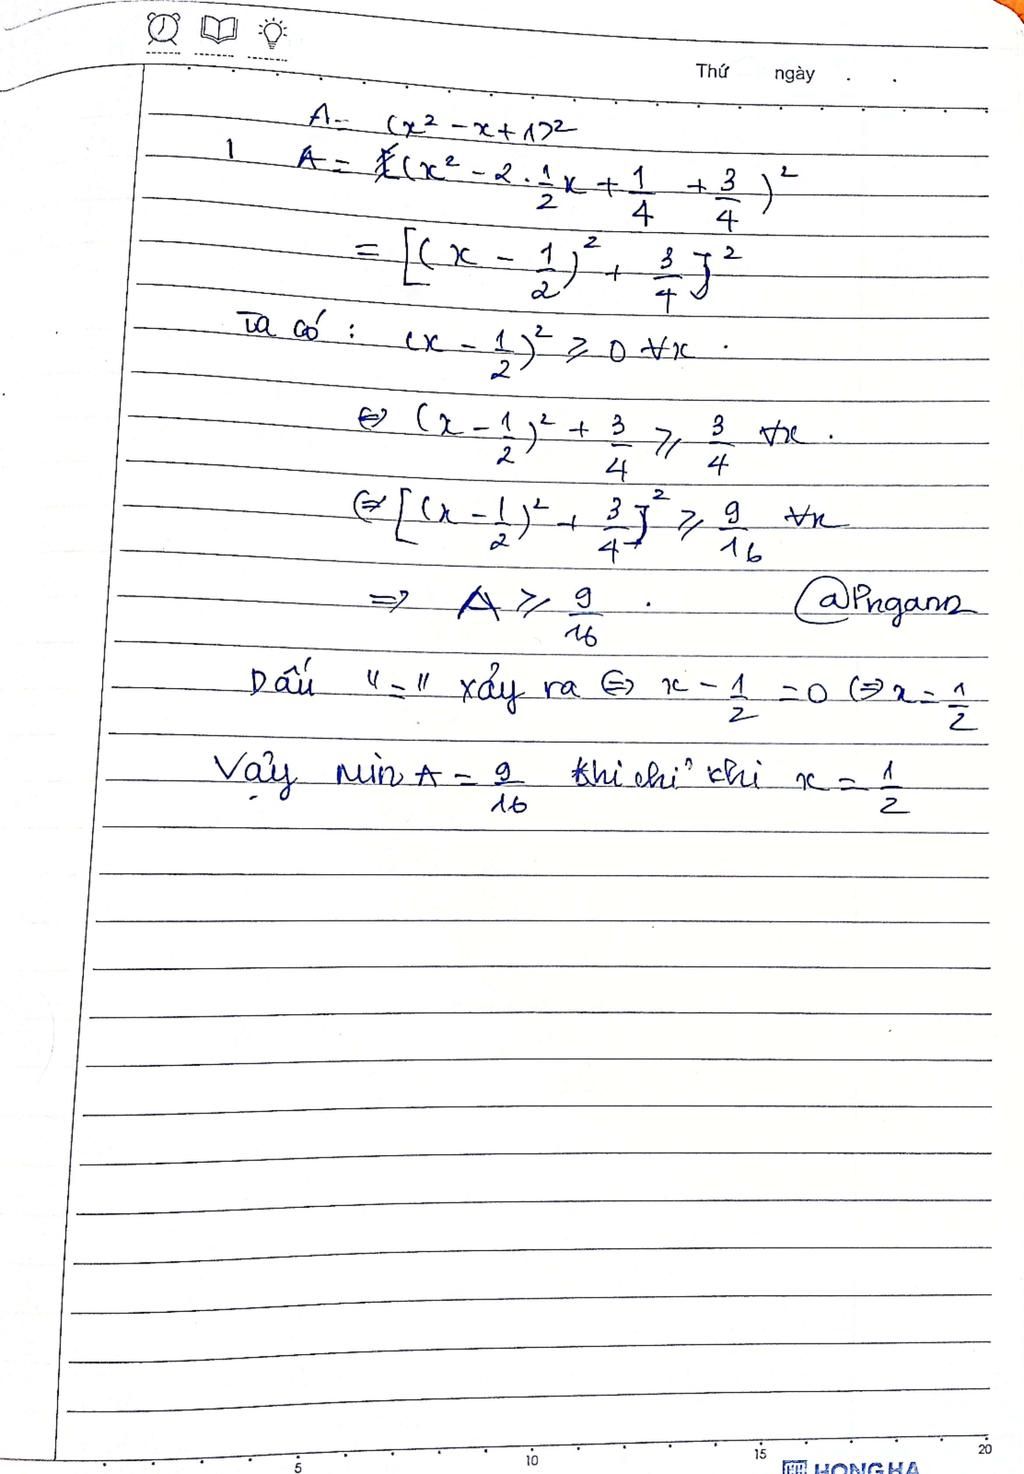 Thứ ngày . .
A = (x² - x + 1)²
1 A = (x² - 2 . 1/2 x + 1/4 + 3/4)²
= [(x - 1/2)² + 3/4]²
Ta có : (x - 1/2)² ⩾ 0 ∀x .
⇔ (x - 1/2)² + 3/4 ⩾ 3/4 ∀x .
⇔ [(x - 1/2)² + 3/4]² ⩾ 9/16 ∀x
⇒ A ⩾ 9/16 . @Pngann
Dấu "=" xảy ra ⇔ x - 1/2 = 0 ⇔ x = 1/2
Vậy Min A = 9/16 khi chỉ khi x = 1/2
5 10 15 20
HONG HA